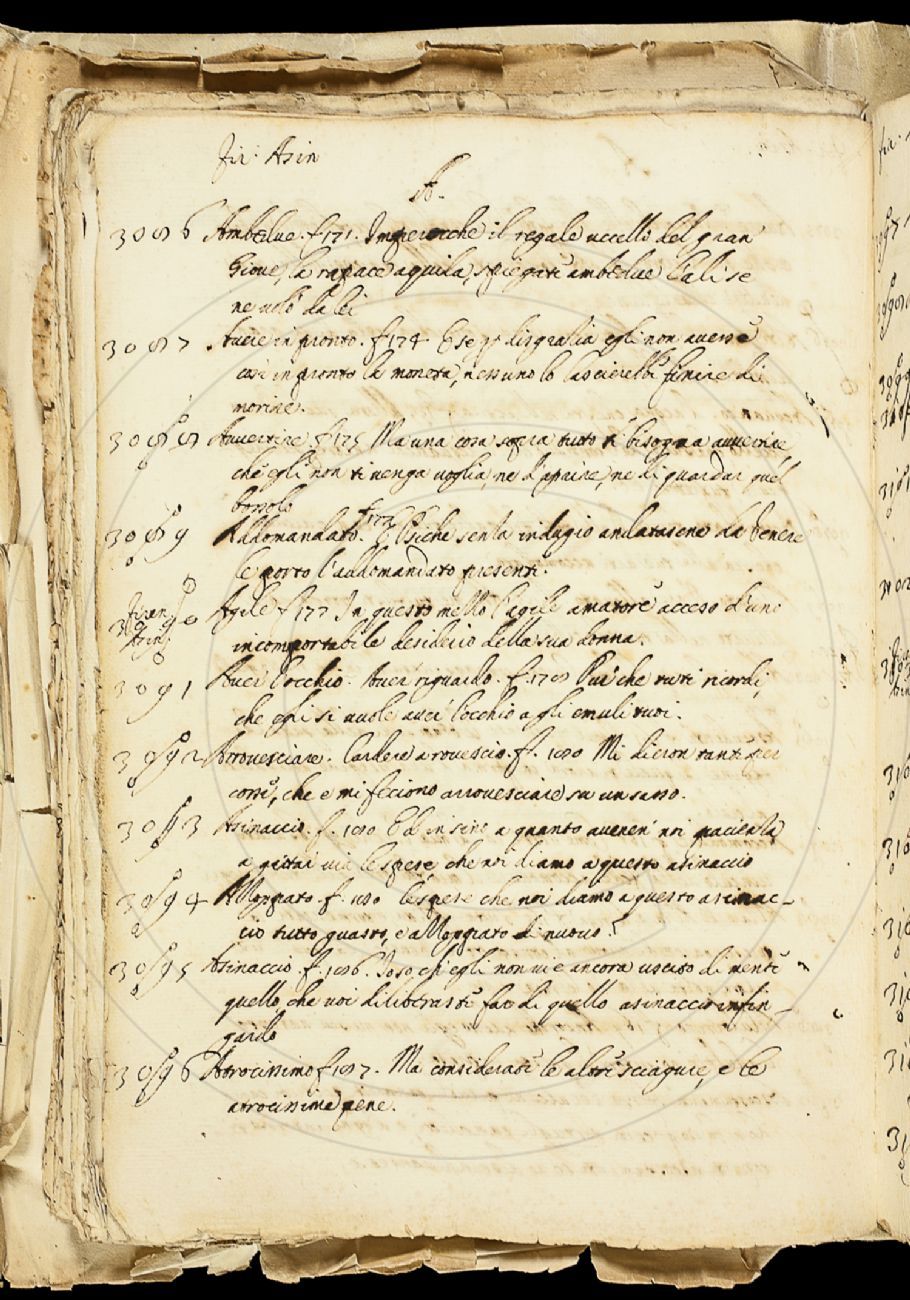 Fir: Asin
A.
3086 Ambedue. f 171. Imperocche il regale uccello del gran
Giove, la rapace aquila, spiegate ambedue l'ali se
ne volò da lei
3087 Avere in pronto. f 174 E se per disgratia egli non avesse
così in pronto la moneta, nessuno lo lascierebbe finire di
morire.
3088 Avvertire f 175 Ma una cosa sopra tutto ti bisogna avvertire
che egli non ti venga voglia, ne d'aprire, ne di guardar quel
bossolo
3089 Addomandato. f 177 E Psiche senza indugio andatasene da Venere
le porto l'addomandato presente.
Firenz
Asin:
3090 Agile f 177 In questo mezzo l'agile amatore acceso d'uno
incomportabile desiderio della sua donna.
3091 Aver l'occhio. Aver riguardo. f. 178 Pur che tu ti ricordi,
che egli si vuole aver l'occhio a gli emuli tuoi.
3092 Arrovesciare. Cadere a rovescio. f. 180 Mi dieron tanti per
corsi, che e mi feciono arrovesciare su un sasso.
3093 Asinaccio. f. 180 Ed insino a quanto averem noi pacienza
a gittar via le spese, che noi diamo a questo asinaccio
3094 Azzoppato f. 180 le spese che noi diamo a questo asinac-
cio tutto guasto, e azzoppato di nuovo?
3095 Asinaccio. f. 186. Io so ch'egli non vi è ancora uscito di mente
quello, che voi diliberaste far di quello asinaccio infin-
gardo
3096 Atrocissimo f 187. Ma considerate le altre sciagure, e le
atrocissime pene.